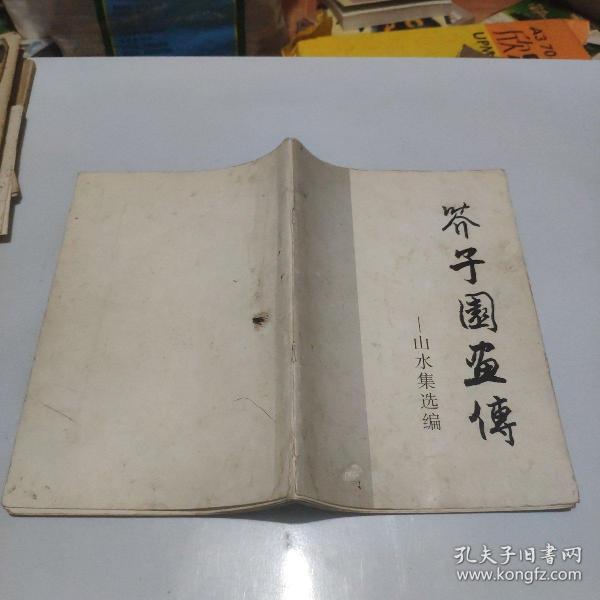 芥子園畫傳
—山水集选编
A3 70
欣
孔夫子旧书网
www.kongfz.com